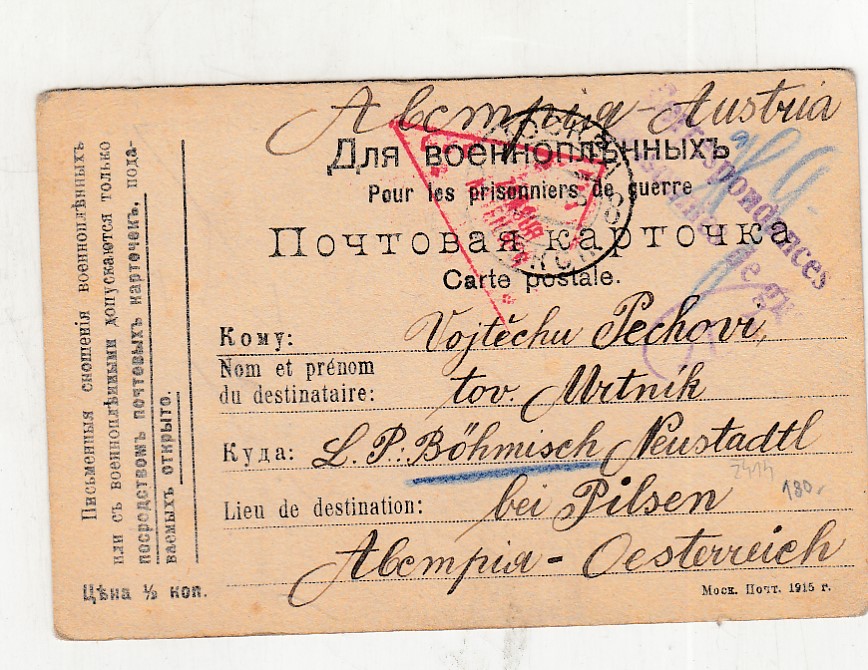 Австрія-Austria
Для военноплѣнныхъ
Pour les prisonniers de guerre
Почтовая карточка
Carte postale.
Correspondances
Кому: Vojtěchu Pechovi,
Nom et prénom
du destinataire: tov. Mrtník
Куда: L. P.: Böhmisch Neustadtl
Lieu de destination: bei Pilsen
Австрія - Oesterreich
2414
180.
Моск. Почт. 1915 г.
Письменныя сношенія военноплѣнныхъ
или съ военноплѣнными допускаются только
посредствомъ почтовыхъ карточекъ, пода-
ваемыхъ открыто.
Цѣна ½ коп.